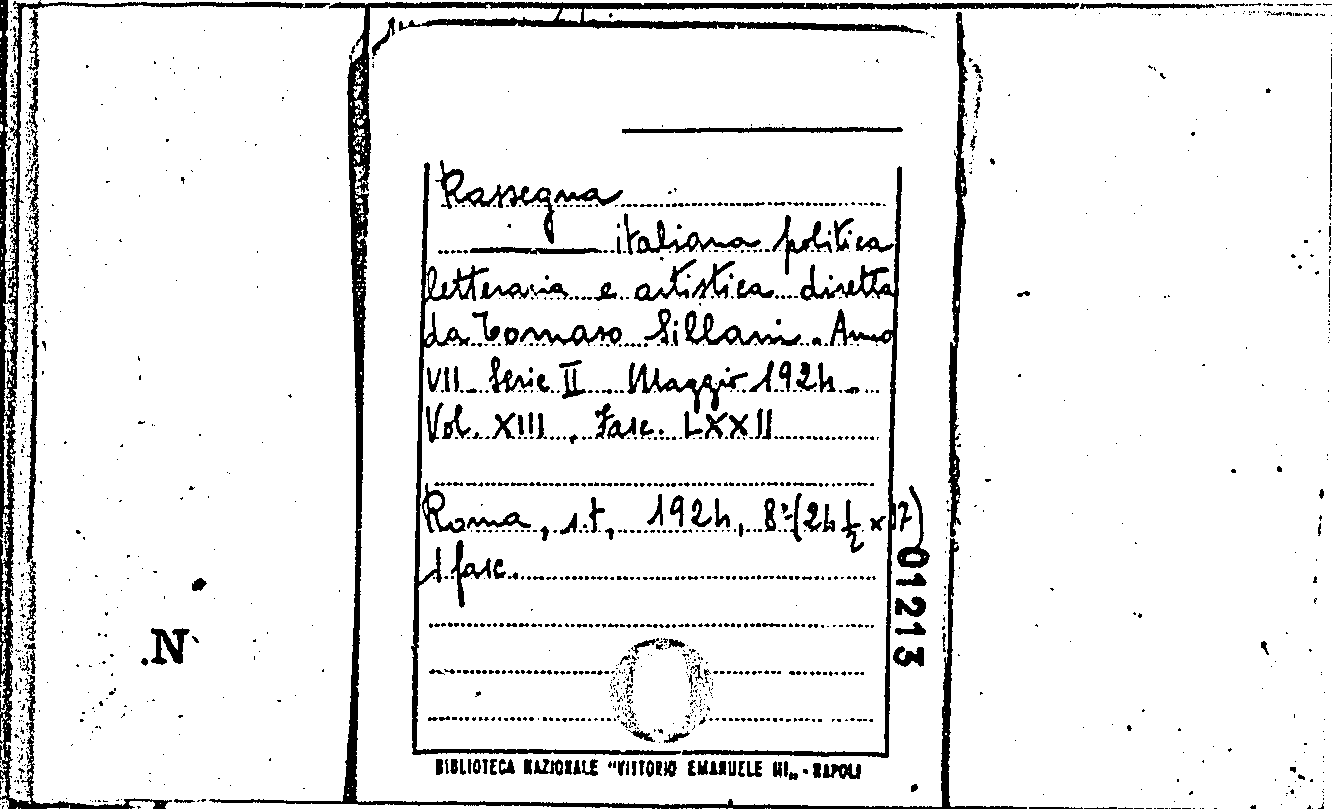 Rassegna
italiana politica
letteraria e artistica diretta
da Tomaso Sillani. Anno
VII. Serie II. Maggio 1924.
Vol. XIII. Fasc. LXXII
Roma, s.t., 1924, 8º (24 1/2 x 17)
1 fasc.
01213
.N
BIBLIOTECA NAZIONALE "VITTORIO EMANUELE III„ - NAPOLI